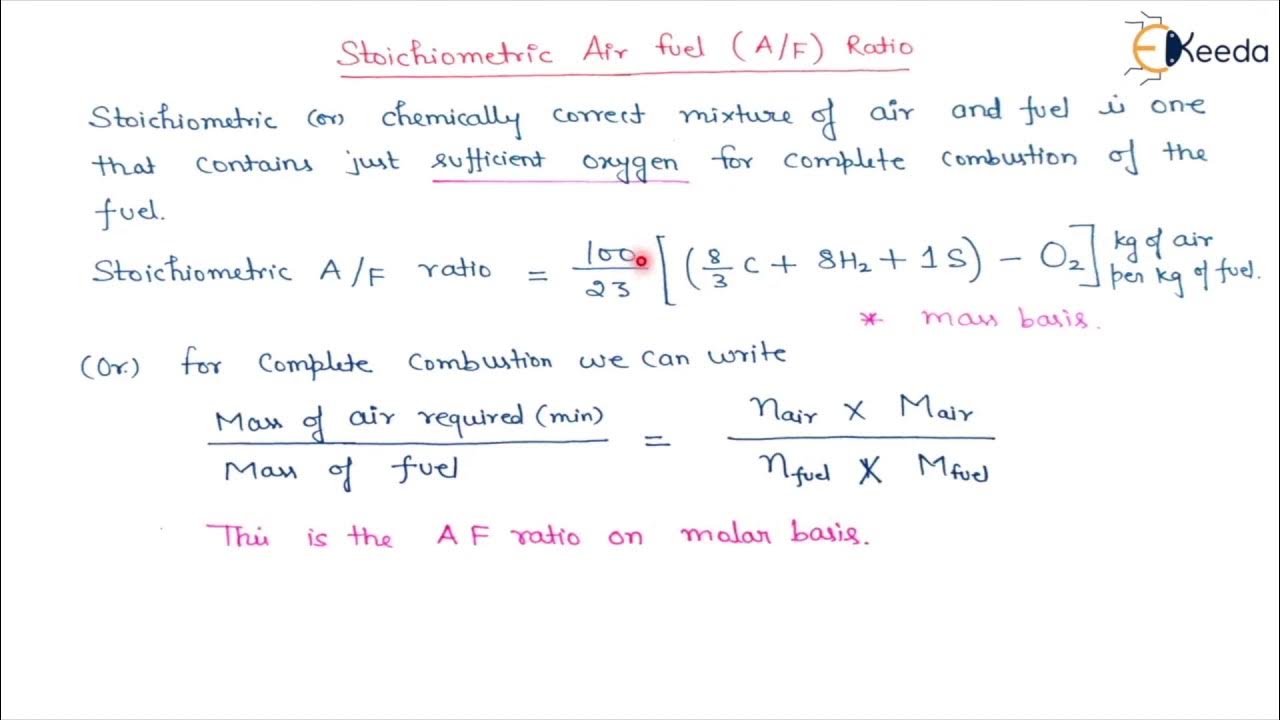 Stoichiometric Air fuel (A/F) Ratio
EKeeda
Stoichiometric (or) chemically correct mixture of air and fuel is one
that contains just sufficient oxygen for complete combustion of the
fuel.
Stoichiometric A/F ratio = 100/23 [(8/3 C + 8H₂ + 1S) - O₂] kg of air per kg of fuel.
* mass basis.
(Or) for complete combustion we can write
Mass of air required (min) / Mass of fuel = nair X Mair / nfuel X Mfuel
This is the AF ratio on molar basis.